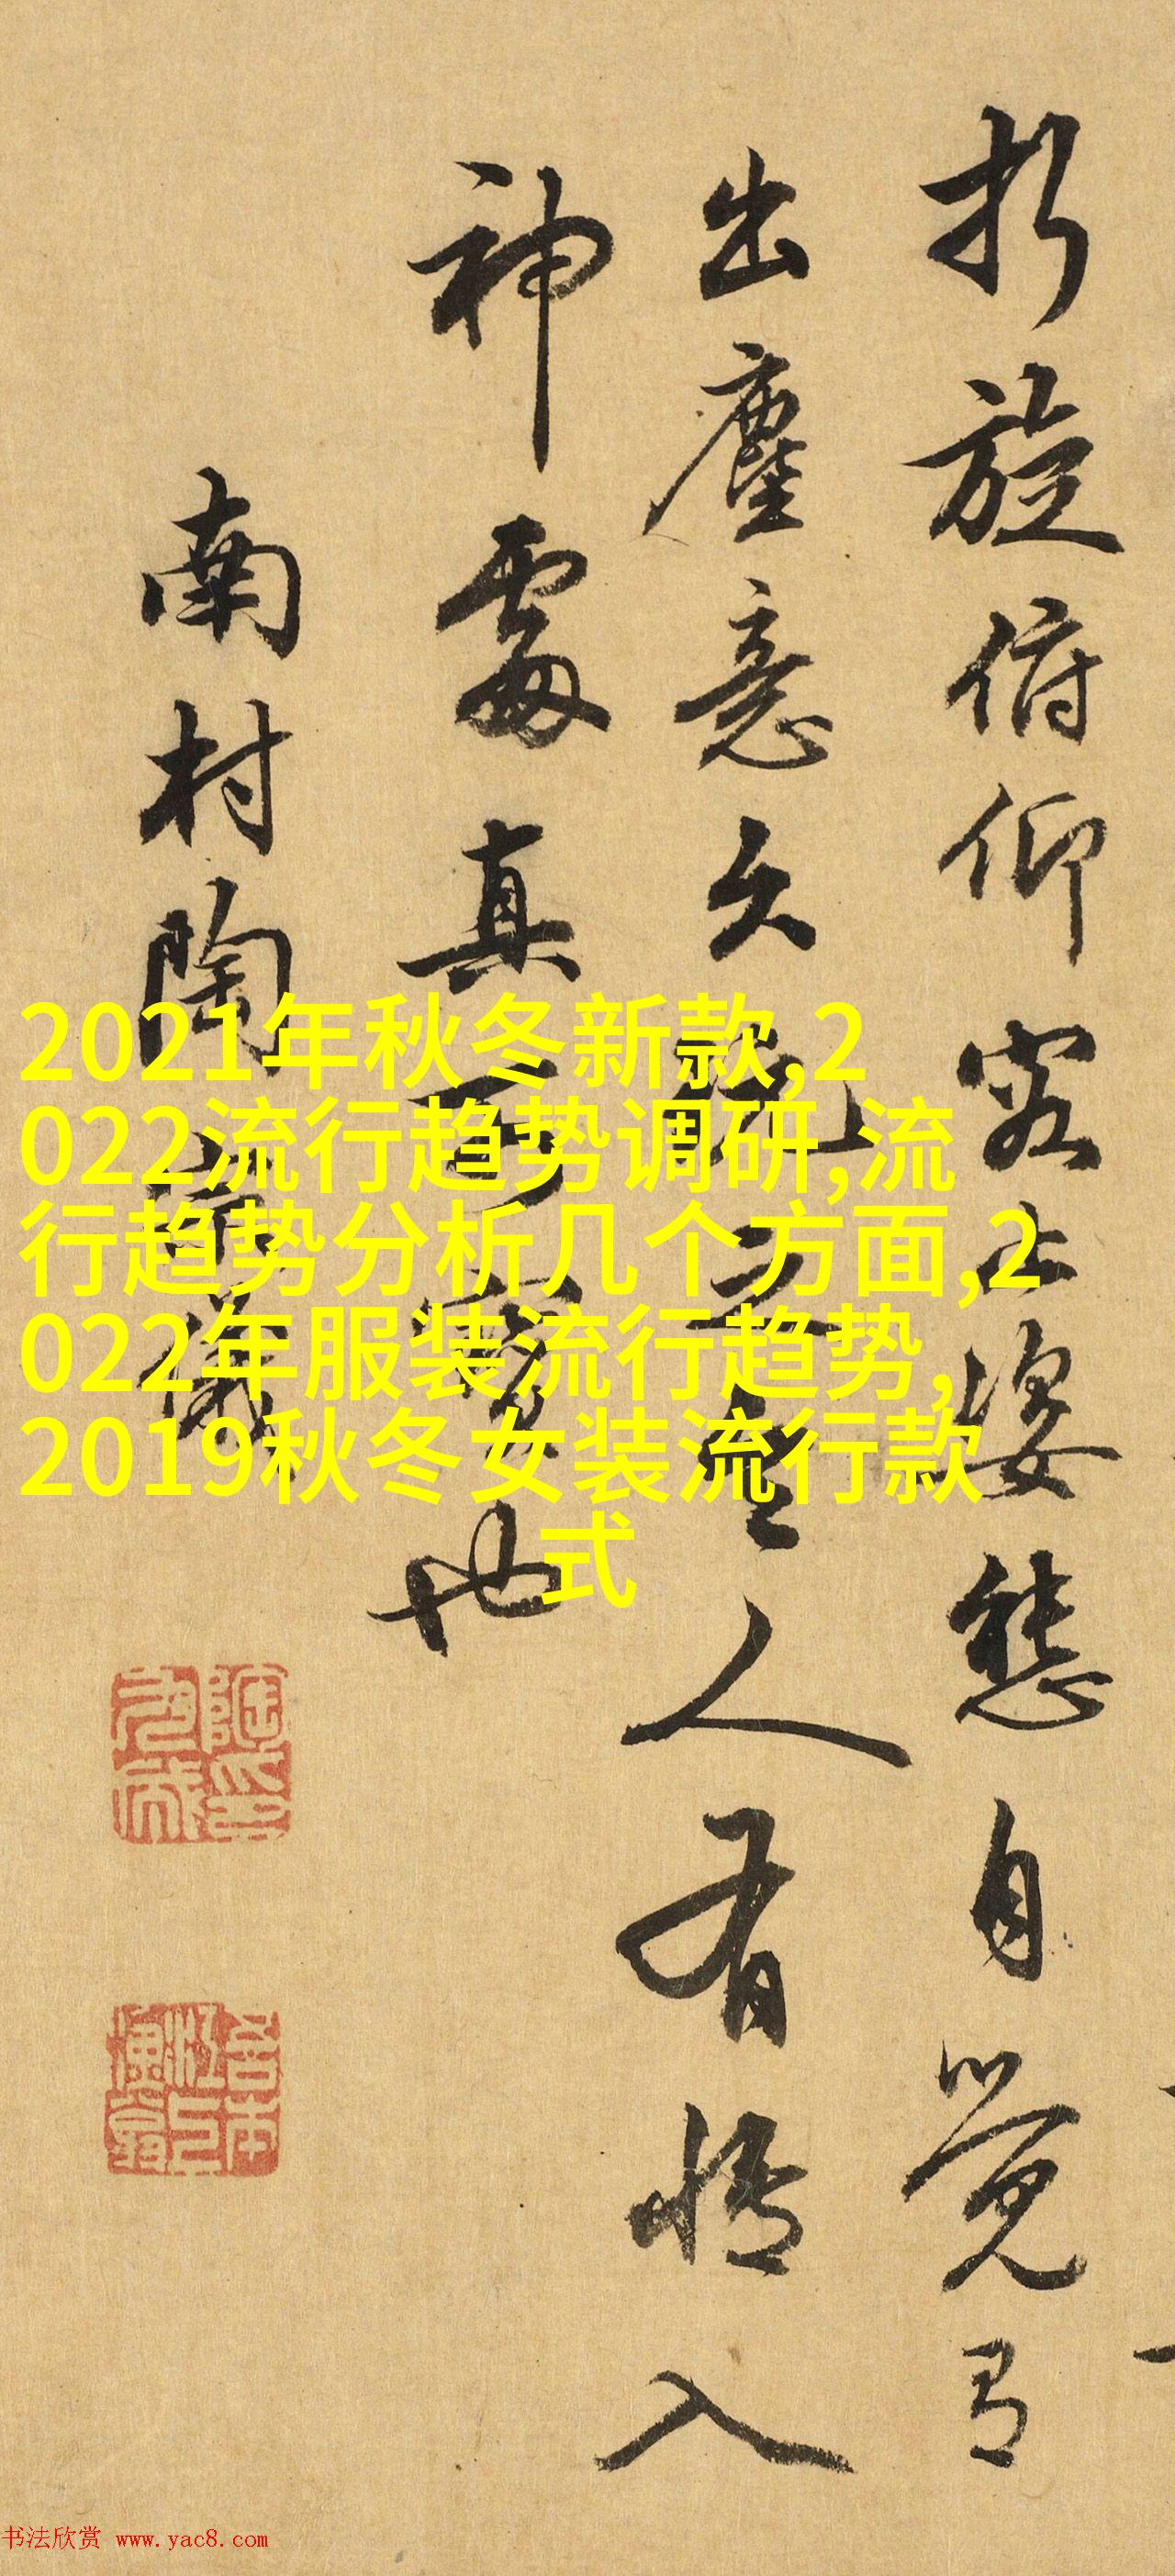 折旋俯仰容止姿態自覺有
出塵意久玩之令人有情入
神處真可寶也
南村陶宗儀
2021年秋冬新款,2
022流行趋势调研,流
行趋势分析几个方面,2
022年服装流行趋势,
2019秋冬女装流行款
式
书法欣赏 www.yac8.com